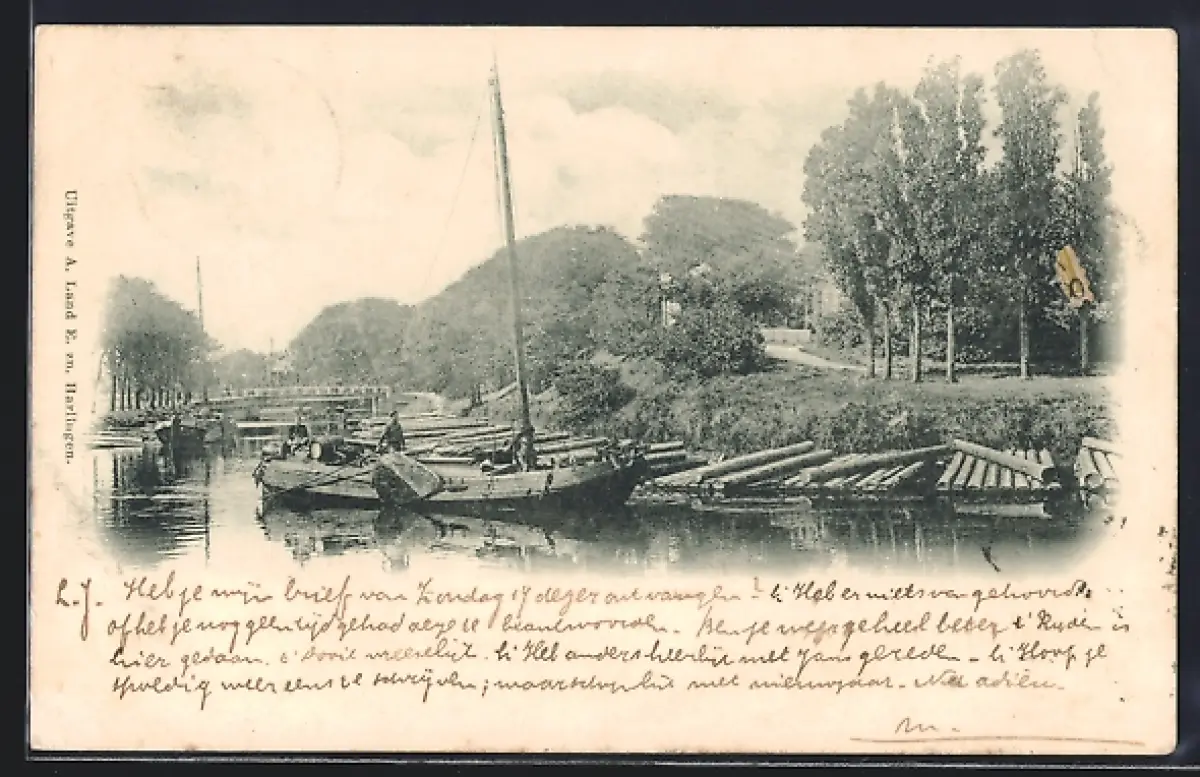 Uitgave A. Land E. zn, Harlingen.
L. J. Heb je mijn brief van Zondag 17 dezer ontvangen? k Heb er niets van gehoord
of heb je nog geen tijd gehad deze te beantwoorden. Ben je weer geheel beter t Rijden is
hier gedaan. t dooit vreeselijk. k Heb anders heerlijk met Jans gereden - k Hoop je
spoedig weer eens te schrijven; maar schrijf met nieuwjaar. Nu adieu.
M.